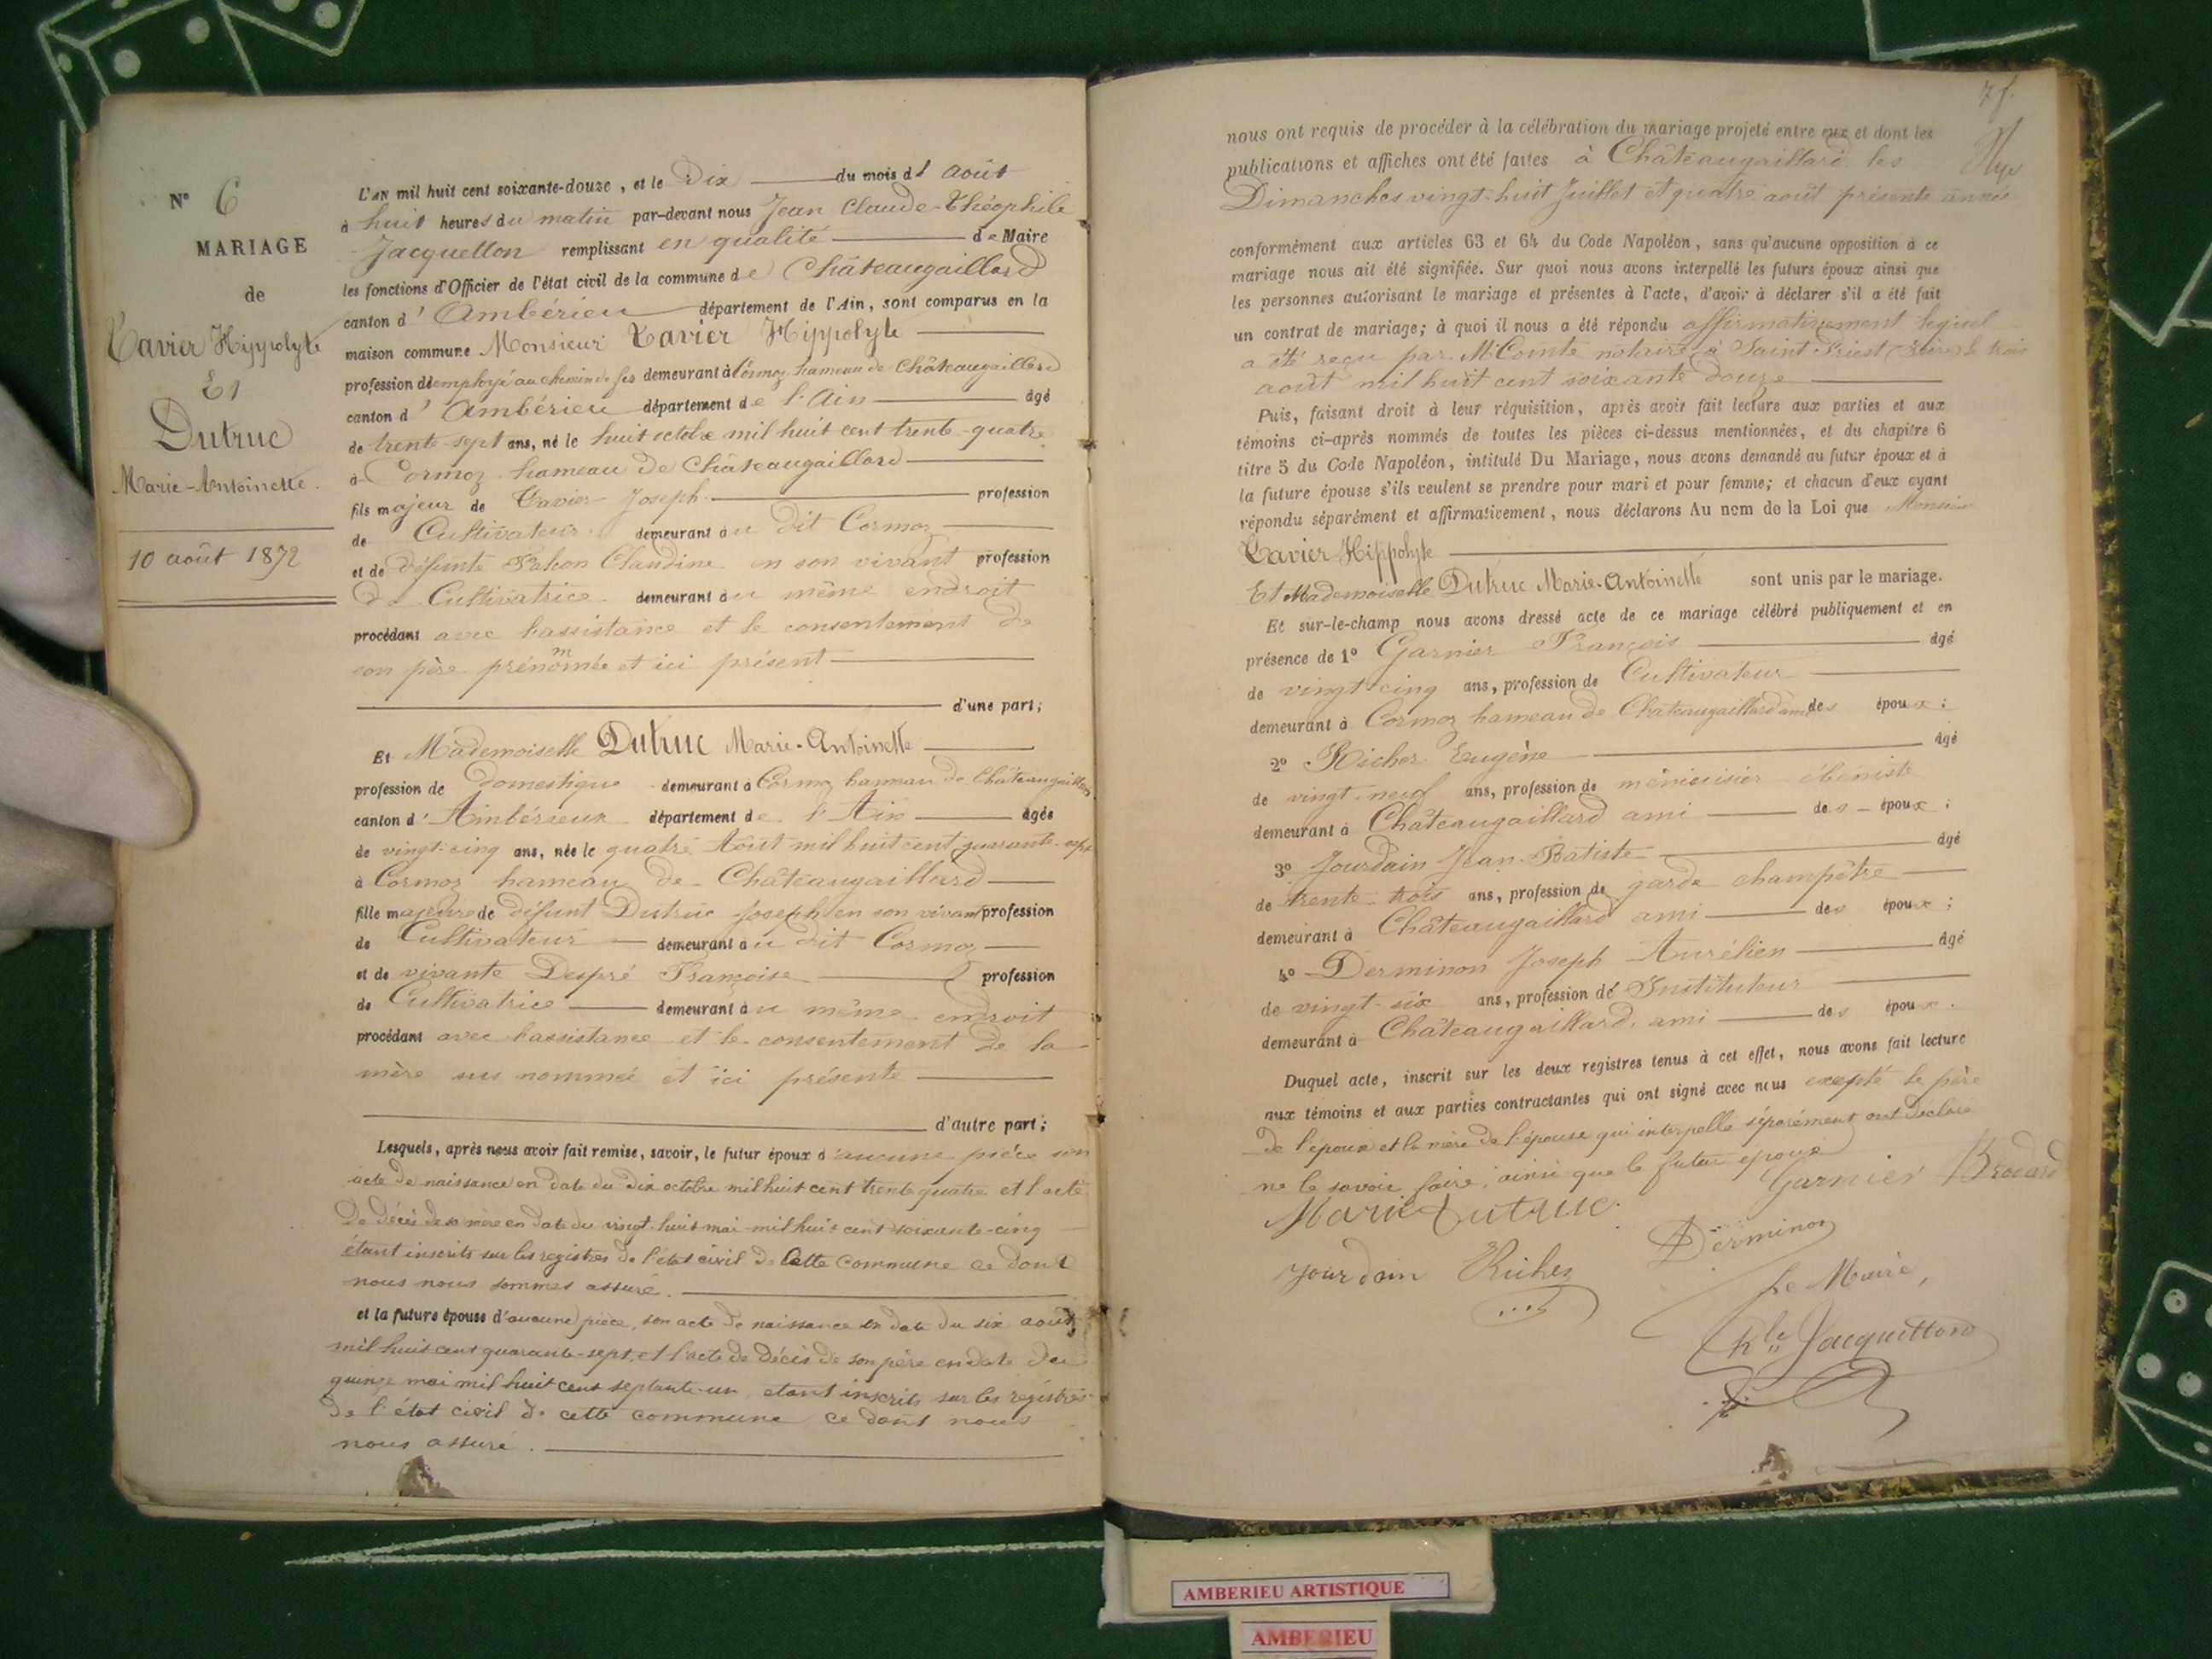 N° 6
MARIAGE
de
Tavier Hippolyte
Et
Dutruc
Marie-Antoinette.
10 août 1872
L'AN mil huit cent soixante-douze, et le Dix du mois d' août
à huit heures du matin par-devant nous Jean Claude-Théophile
Jacquetton remplissant en qualité de Maire
les fonctions d'Officier de l'état civil de la commune de Châteaugaillard
canton d' Ambérieu département de l'Ain, sont comparus en la
maison commune Monsieur Tavier Hippolyte
profession d'employé au chemin de fer demeurant à Cormoz hameau de Châteaugaillard
canton d' Ambérieu département de l'Ain âgé
de trente-sept ans, né le huit octobre mil huit cent trente-quatre
à Cormoz hameau de Châteaugaillard
fils majeur de Tavier Joseph profession
de Cultivateur demeurant au dit Cormoz
et de défunte Falcon Claudine en son vivant profession
de Cultivatrice demeurant au même endroit
procédant avec l'assistance et le consentement de
son père prénommé et ici présent
d'une part;
Et Mademoiselle Dutruc Marie-Antoinette
profession de domestique demeurant à Cormoz hameau de Châteaugaillard
canton d' Ambérieux département de l'Ain âgée
de vingt-cinq ans, née le quatre Août mil huit cent quarante-sept
à Cormoz hameau de Châteaugaillard
fille majeure de défunt Dutruc Joseph en son vivant profession
de Cultivateur demeurant au dit Cormoz
et de vivante Despré Françoise profession
de Cultivatrice demeurant au même endroit
procédant avec l'assistance et le consentement de la
mère sus nommée et ici présente
d'autre part;
Lesquels, après nous avoir fait remise, savoir, le futur époux d'aucune pièce son
acte de naissance en date du dix octobre mil huit cent trente quatre et l'acte
de décès de sa mère en date du vingt-huit mai mil huit cent soixante-cinq
étant inscrits sur les registres de l'état civil de cette commune ce dont
nous nous sommes assuré.
et la future épouse d'aucune pièce, son acte de naissance en date du six août
mil huit cent quarante-sept, et l'acte de décès de son père en date du
quinze mai mil huit cent septante-un, étant inscrits sur les registres
de l'état civil de cette commune ce dont nous
nous assuré.
nous ont requis de procéder à la célébration du mariage projeté entre eux et dont les
publications et affiches ont été faites à Châteaugaillard les
Dimanches vingt-huit Juillet et quatre août présente année
conformément aux articles 63 et 64 du Code Napoléon, sans qu'aucune opposition à ce
mariage nous ait été signifiée. Sur quoi nous avons interpellé les futurs époux ainsi que
les personnes autorisant le mariage et présentes à l'acte, d'avoir à déclarer s'il a été fait
un contrat de mariage; à quoi il nous a été répondu affirmativement lequel
a été reçu par Me Comte notaire à Saint Priest (Isère) le trois
août mil huit cent soixante douze
Puis, faisant droit à leur réquisition, après avoir fait lecture aux parties et aux
témoins ci-après nommés de toutes les pièces ci-dessus mentionnées, et du chapitre 6
titre 5 du Code Napoléon, intitulé Du Mariage, nous avons demandé au futur époux et à
la future épouse s'ils veulent se prendre pour mari et pour femme; et chacun d'eux ayant
répondu séparément et affirmativement, nous déclarons Au nom de la Loi que Monsieur
Tavier Hippolyte
Et Mademoiselle Dutruc Marie-Antoinette sont unis par le mariage.
Et sur-le-champ nous avons dressé acte de ce mariage célébré publiquement et en
présence de 1° Garnier François âgé
de vingt-cinq ans, profession de Cultivateur
demeurant à Cormoz hameau de Châteaugaillard ami des époux;
2° Richer Eugène âgé
de vingt-neuf ans, profession de menieuisier ébéniste
demeurant à Châteaugaillard ami des époux;
3° Jourdain Jean-Batiste âgé
de trente-trois ans, profession de garde champêtre
demeurant à Châteaugaillard ami des époux;
4° Derminon Joseph Aurélien âgé
de vingt-six ans, profession de Instituteur
demeurant à Châteaugaillard, ami des époux.
Duquel acte, inscrit sur les deux registres tenus à cet effet, nous avons fait lecture
aux témoins et aux parties contractantes qui ont signé avec nous excepté le père
de l'époux et la mère de l'épouse qui interpellé séparément ont déclaré
ne le savoir faire, ainsi que le futur époux
Garnier Brodard
Marie Dutruc
Derminon
Jourdain Richer
Le Maire,
Jacquetton
AMBERIEU ARTISTIQUE
AMBERIEU